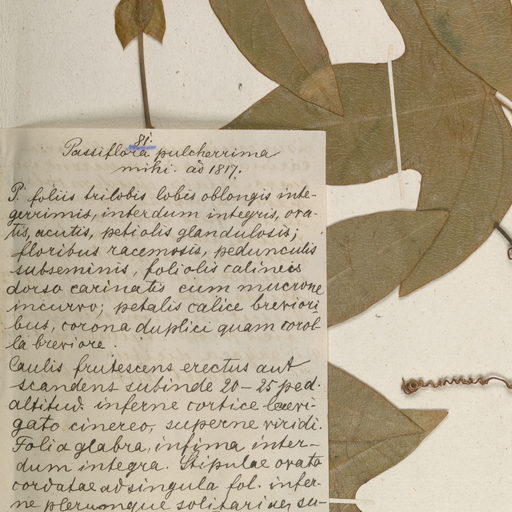 81.
Passiflora pulcherrima
mihi. ad 1817.
P. foliis trilobis lobis oblongis inte-
gerrimis, interdum integris, ova-
tis, acutis, petiolis glandulosis;
floribus racemosis, pedunculis
subseminis, foliolis calineis
dorso carinatis cum mucrone
incurvo; petalis calice breviori-
bus, corona duplici quam corol-
la breviore.
Caulis frutescens erectus aut
scandens subinde 20-25 ped.
altitud. inferne cortice laevi-
gato cinereo, superne viridi.
Folia glabra, infima inter-
dum integra. Stipulae ovato
cordatae ad singula fol. infer-
ne plerumque solitariae, su-